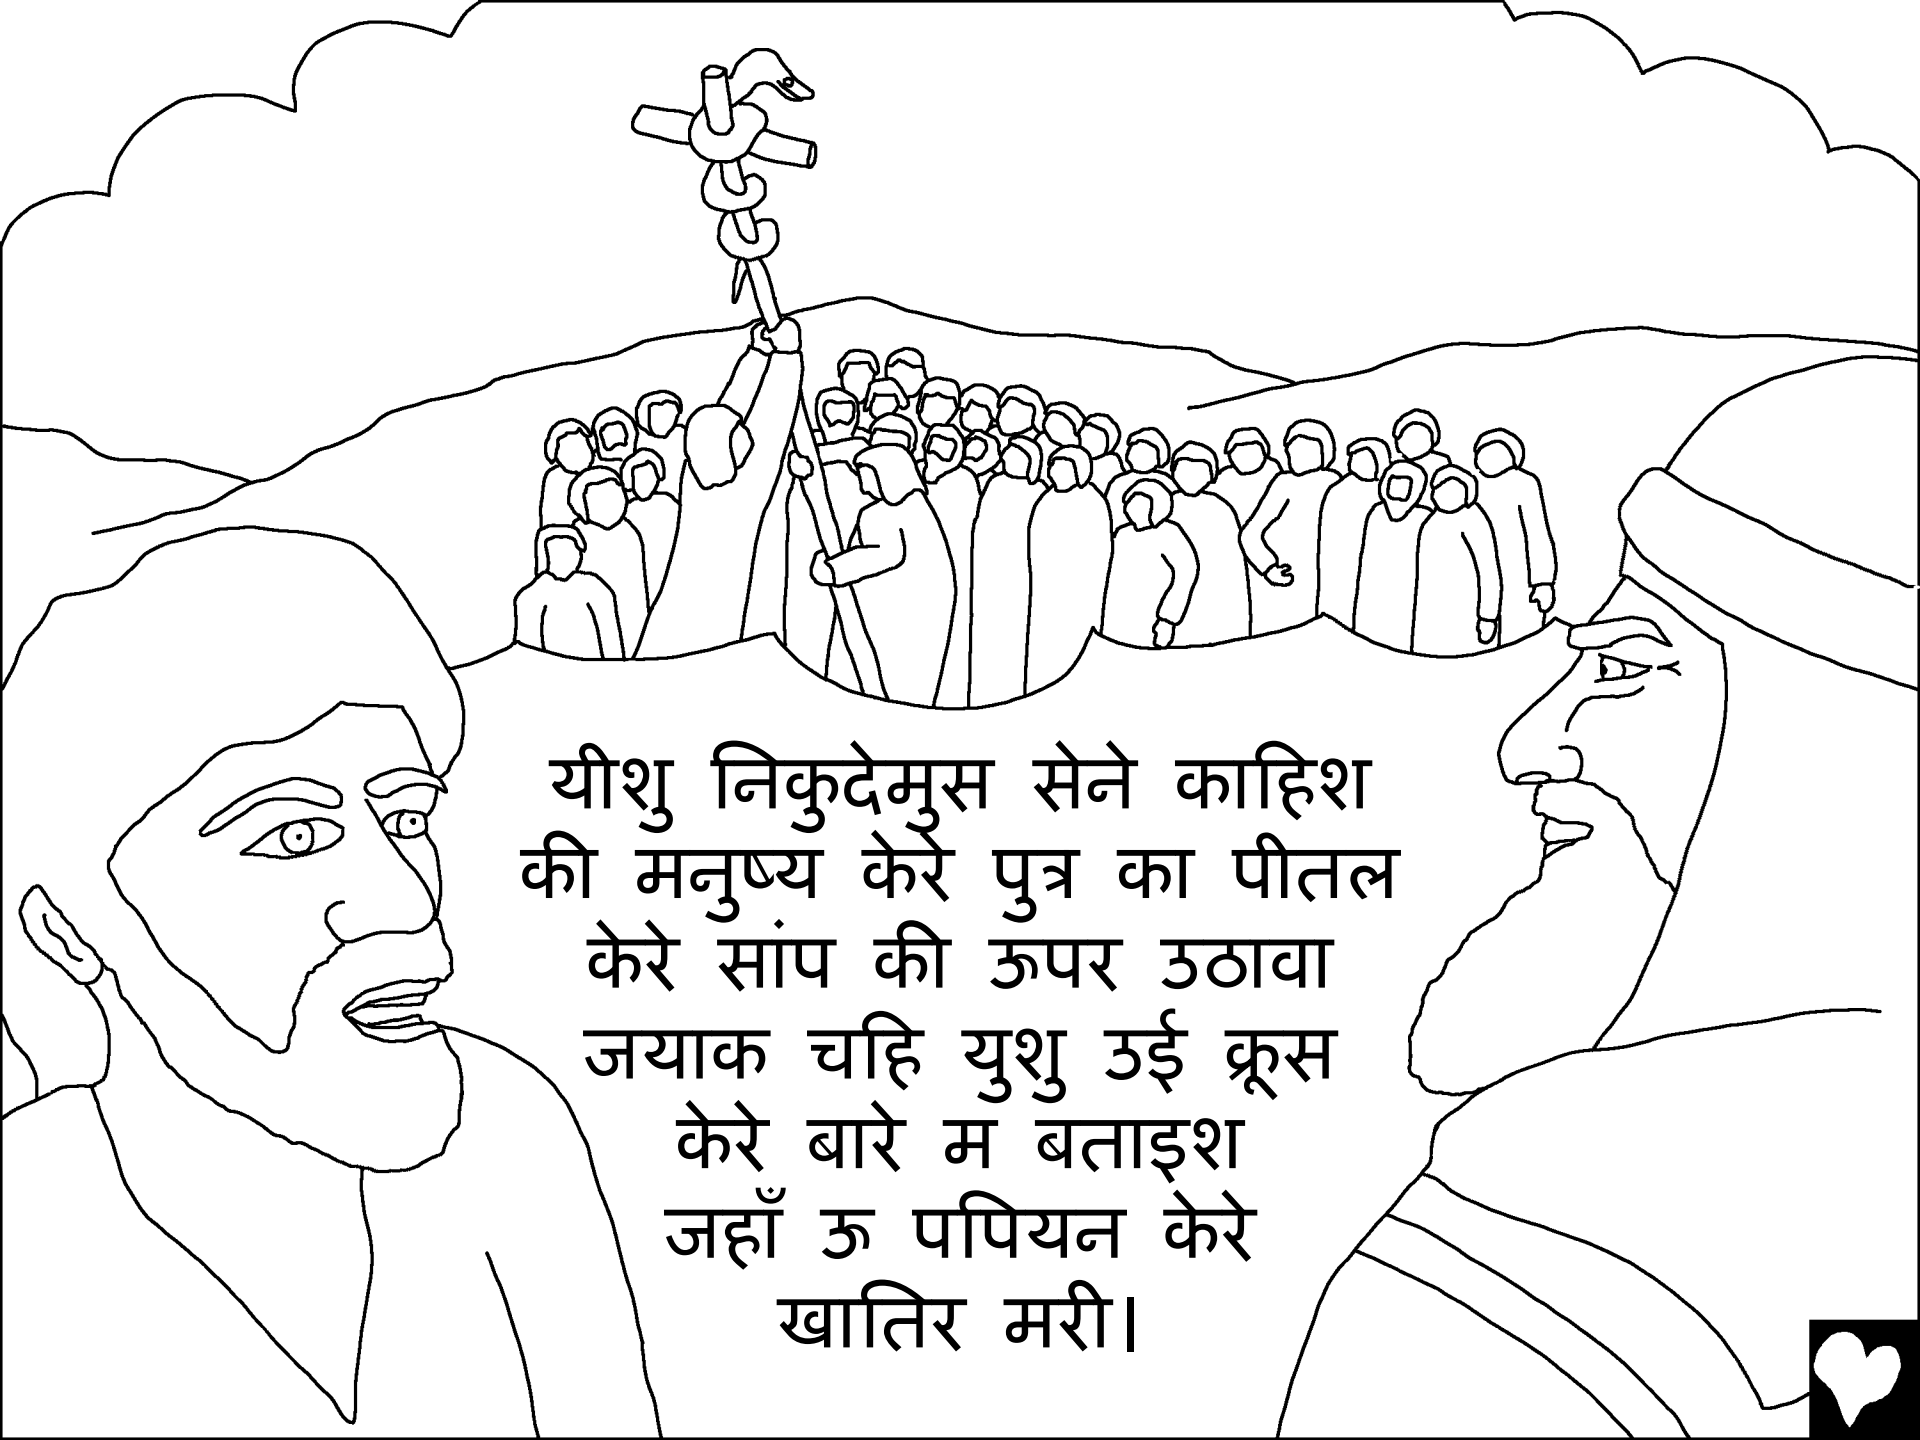 यीशु निकुदेमुस सेने काहिश
की मनुष्य केरे पुत्र का पीतल
केरे सांप की ऊपर उठावा
जयाक चहि युशु उई क्रूस
केरे बारे म बताइश
जहाँ ऊ पपियन केरे
खातिर मरी।